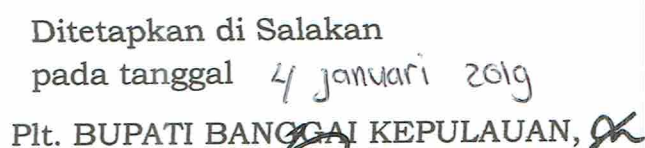 Ditetapkan di Salakan
pada tanggal 4 januari 2019
Plt. BUPATI BANGGAI KEPULAUAN,